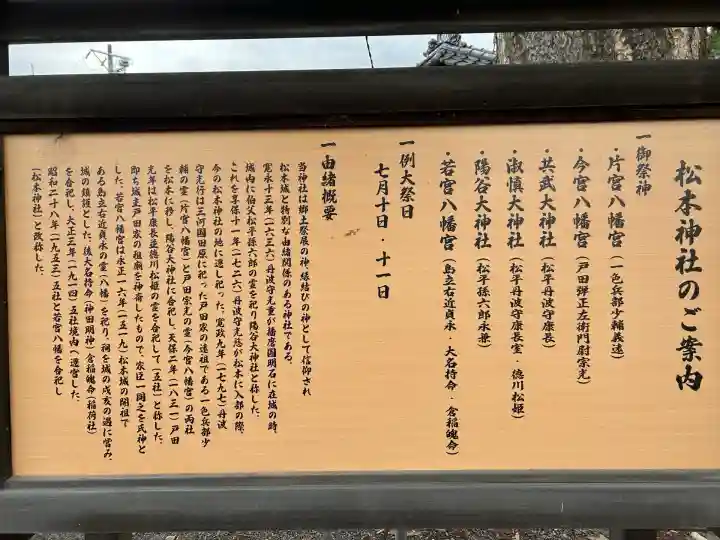 松本神社のご案内
一御祭神
・片宮八幡宮（一色兵部少輔義遠）
・今宮八幡宮（戸田弾正左衛門尉宗光）
・共武大神社（松平丹波守康長）
・淑慎大神社（松平丹波守康長室・徳川松姫）
・陽谷大神社（松平孫六郎永兼）
・若宮八幡宮（島立右近貞永・大名持命・倉稲魄命）
一例大祭日
七月十日・十一日
一由緒概要
当神社は郷土発展の神、縁結びの神として信仰され
松本城と特別な由緒関係のある神社である。
寛永十三年（一六三六）丹波守光重が播磨国明石に在城の時、
城内に伯父松平孫六郎の霊を祀り陽谷大神社と称した。
これを享保十一年（一七二六）丹波守光慈が松本に入部の際、
今の松本神社の地に遷し祀った。寛政九年（一七九七）丹波
守光行は三河国田原に祀った戸田家の遠祖である一色兵部少
輔の霊（片宮八幡宮）と戸田宗光の霊（今宮八幡宮）の両社
を松本に移し、陽谷大神社に合祀し、天保二年（一八三一）戸田
光年は松平康長並徳川松姫の霊を合祀して（五社）と称した。
即ち城主戸田家の祖廟を神斎したもので、家臣一同之を氏神と
した。若宮八幡宮は永正一六年（一五一九）松本城の開祖で
ある島立右近貞永の霊（八幡）を祀り、祠を城の戌亥の隅に営み、
城の鎮護とした。後大名持命（神田明神）倉稲魄命（稲荷社）
を合祀し、大正三年（一九一四）五社境内へ遷宮した。
昭和二十八年（一九五三）五社と若宮八幡を合祀し
（松本神社）と改称した。